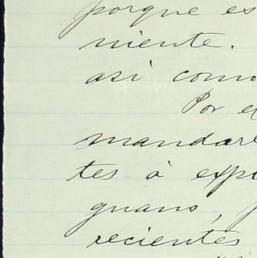 porque es
niente.
asi como
Por e
mandar
tes á exp
guano,
recientes